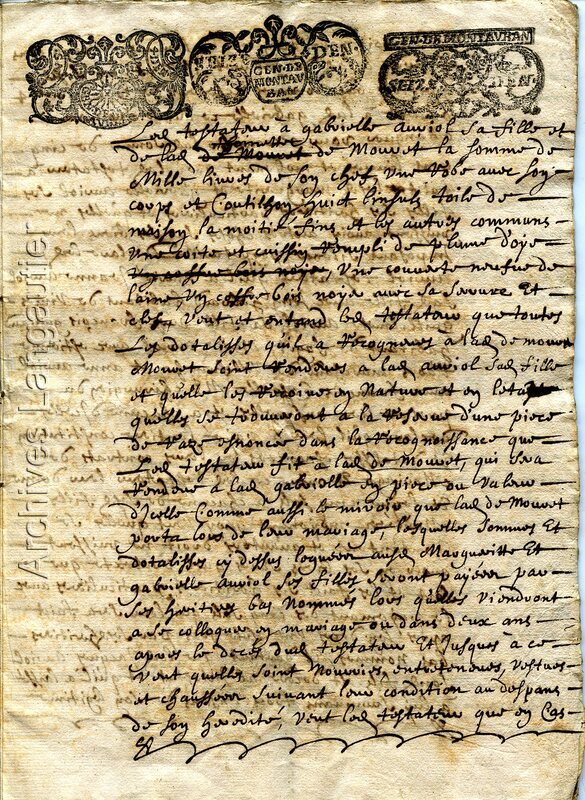 SEIZE DEN.
GEN. DE MONTAUBAN
GEN. DE MONTAUBAN
SEIZE DEN.
Led testateur à gabrielle auriol sa fille et
de lad de Mouret la somme de
Mille livres de son chef, une robe avec son
corps et Coutilhon huict linsuls toile de
maison la moitié fins et les autres communs
une coite et cuissin rempli de plume d'oye
un coffre bois noyé, une couverte neufve de
laine un coffre bois noyé avec sa sarrure Et
clef, veut et entand led testateur que toutes
Les dotalisses quil a recogneues à lad de
Mouret soint rendeues à lad auriol sad fille
et quelle les recoive en Nature et en letat
quelles se trouveront a la reserve d'une piece
de raze enoncée dans la recognoissance que
Led testateur fit à lad de Mouret, qui sera
rendeue à lad gabrielle en piece ou valeur
d'icelle Comme aussi le miroir que lad de Mouret
porta lors de leur mariage, lesquelles sommes Et
dotalisses cy dessus leguées ausd Margueritte Et
gabrielle auriol ses filles seront payées par
ses heritiers bas nommés lors quelles viendront
a se colloquer en mariage ou dans deux ans
apres le deces dud testateur Et jusques à ce
veut quelles soint nourries, entretenues, vestues
et chaussées suivant leur condition au despans
de son heredité, veut led testateur que en cas
Et
Archives Langautier